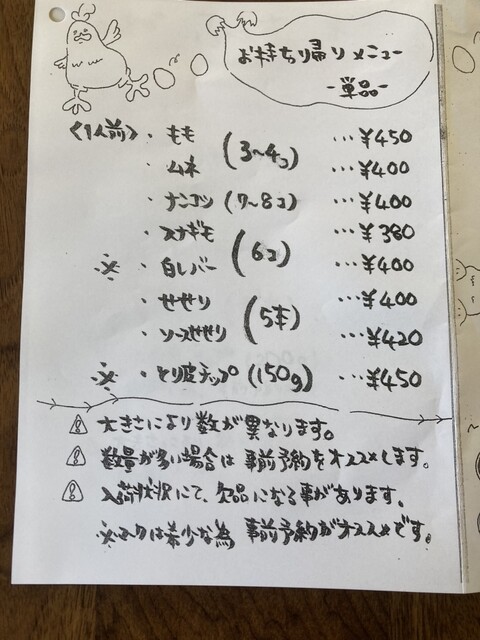 お持ち帰りメニュー
-単品-
〈1人前〉・もも (3~4コ) …¥450
・ムネ …¥400
・ナンコツ (7~8コ) …¥400
・スナギモ (6コ) …¥380
※・白レバー …¥400
・せせり (5本) …¥400
・ソースせせり …¥420
※・とり皮チップ (150g) …¥450
⚠ 大きさにより数が異なります。
⚠ 数量が多い場合は事前予約をオススメします。
⚠ 入荷状況にて、欠品になる事があります。
※マークは希少な為 事前予約がオススメです。